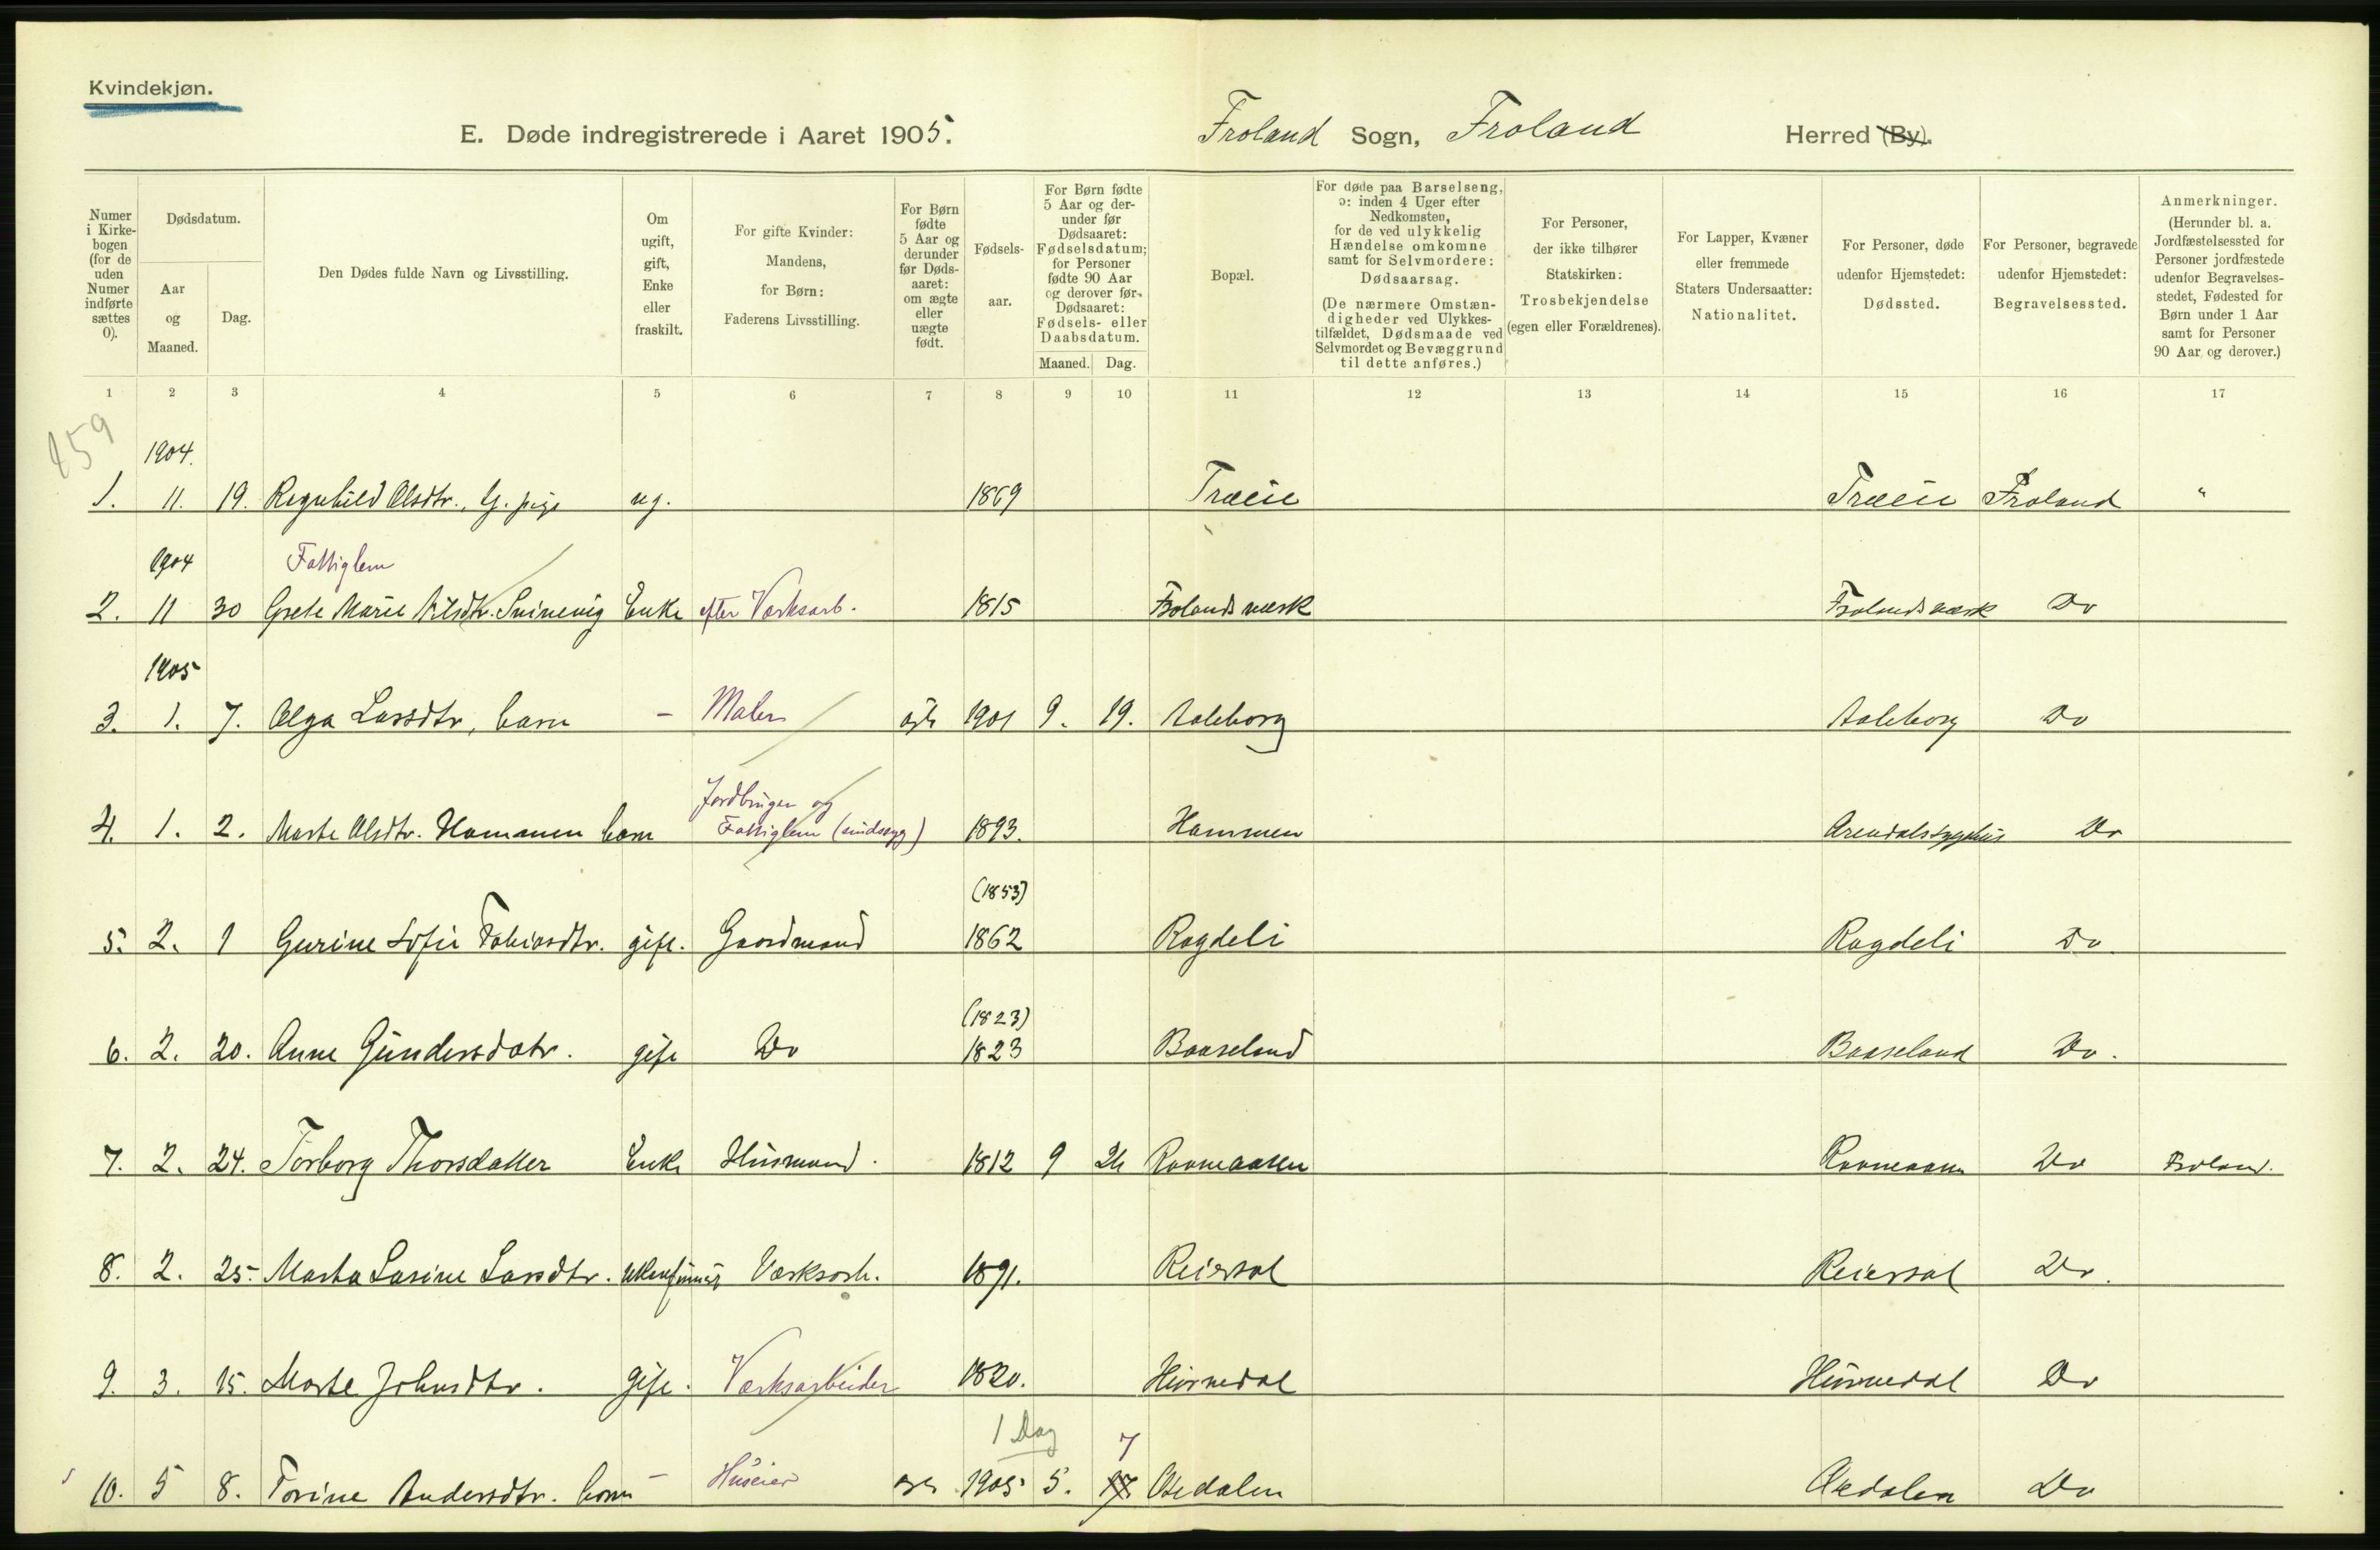 Kvindekjøn.
E. Døde indregistrerede i Aaret 1905. Froland Sogn, Froland Herred (By).
Numer i Kirkebogen (for de uden Numer indførte sættes 0).
Dødsdatum.
Aar og Maaned.
Dag.
Den Dødes fulde Navn og Livsstilling.
Om ugift, gift, Enke eller fraskilt.
For gifte Kvinder: Mandens, for Børn: Faderens Livsstilling.
For Børn fødte 5 Aar og derunder før Dødsaaret: om ægte eller uægte født.
Fødselsaar.
For Børn fødte 5 Aar og derunder før Dødsaaret: Fødselsdatum; for Personer fødte 90 Aar og derover før Dødsaaret: Fødsels- eller Daabsdatum.
Maaned. Dag.
Bopæl.
For døde paa Barselseng, ɔ: inden 4 Uger efter Nedkomsten, for de ved ulykkelig Hændelse omkomne samt for Selvmordere: Dødsaarsag.
(De nærmere Omstændigheder ved Ulykkestilfældet, Dødsmaade ved Selvmordet og Bevæggrund til dette anføres.)
For Personer, der ikke tilhører Statskirken: Trosbekjendelse (egen eller Forældrenes).
For Lapper, Kvæner eller fremmede Staters Undersaatter: Nationalitet.
For Personer, døde udenfor Hjemstedet: Dødssted.
For Personer, begravede udenfor Hjemstedet: Begravelsessted.
Anmerkninger.
(Herunder bl. a. Jordfæstelsessted for Personer jordfæstede udenfor Begravelsesstedet, Fødested for Børn under 1 Aar samt for Personer 90 Aar og derover.)
1 2 3 4 5 6 7 8 9 10 11 12 13 14 15 16 17
459
1904.
1. 11. 19. Ragnhild Olsdtr., G. pige ug. 1869 Træeie Træeie Froland "
1904 Fattiglem
2. 11 30 Grete Marie Nilsdtr. Enke efter Værksarb. 1815 Frolands værk Frolands værk Do
1905
3. 1. 7. Olga Larsdtr, barn - Maler ægte 1901 9. 19. Aaleborg Aaleborg Do
Jordbruger og
4. 1. 2. Marte Olsdtr. Hammen barn Fattiglem (sindssyg) 1893. Hammen Arendalssygehus Do
(1853)
5. 2. 1 Gurine Sofie Tobiasdtr. gift. Gaardmand 1862 Rogdeli Rogdeli Do
(1823)
6. 2. 20. Anne Gundersdatr. gift Do 1823 Baaseland Baaseland Do.
7. 2. 24. Torborg Thorsdatter Enke Husmand. 1812 9 24 Do Froland.
8. 2. 25. Marta Larsdtr. Værksarb. 1891. Reiersøl Reiersøl Do.
9. 3. 15. Marte Johnsdtr. gift. Værksarbeider 1820. Hurvedal Hurvedal Do
1 Dag 7
10. 5 8. Torine Andersdtr. barn - Huseier 1905 5. Osedalen Osedalen Do